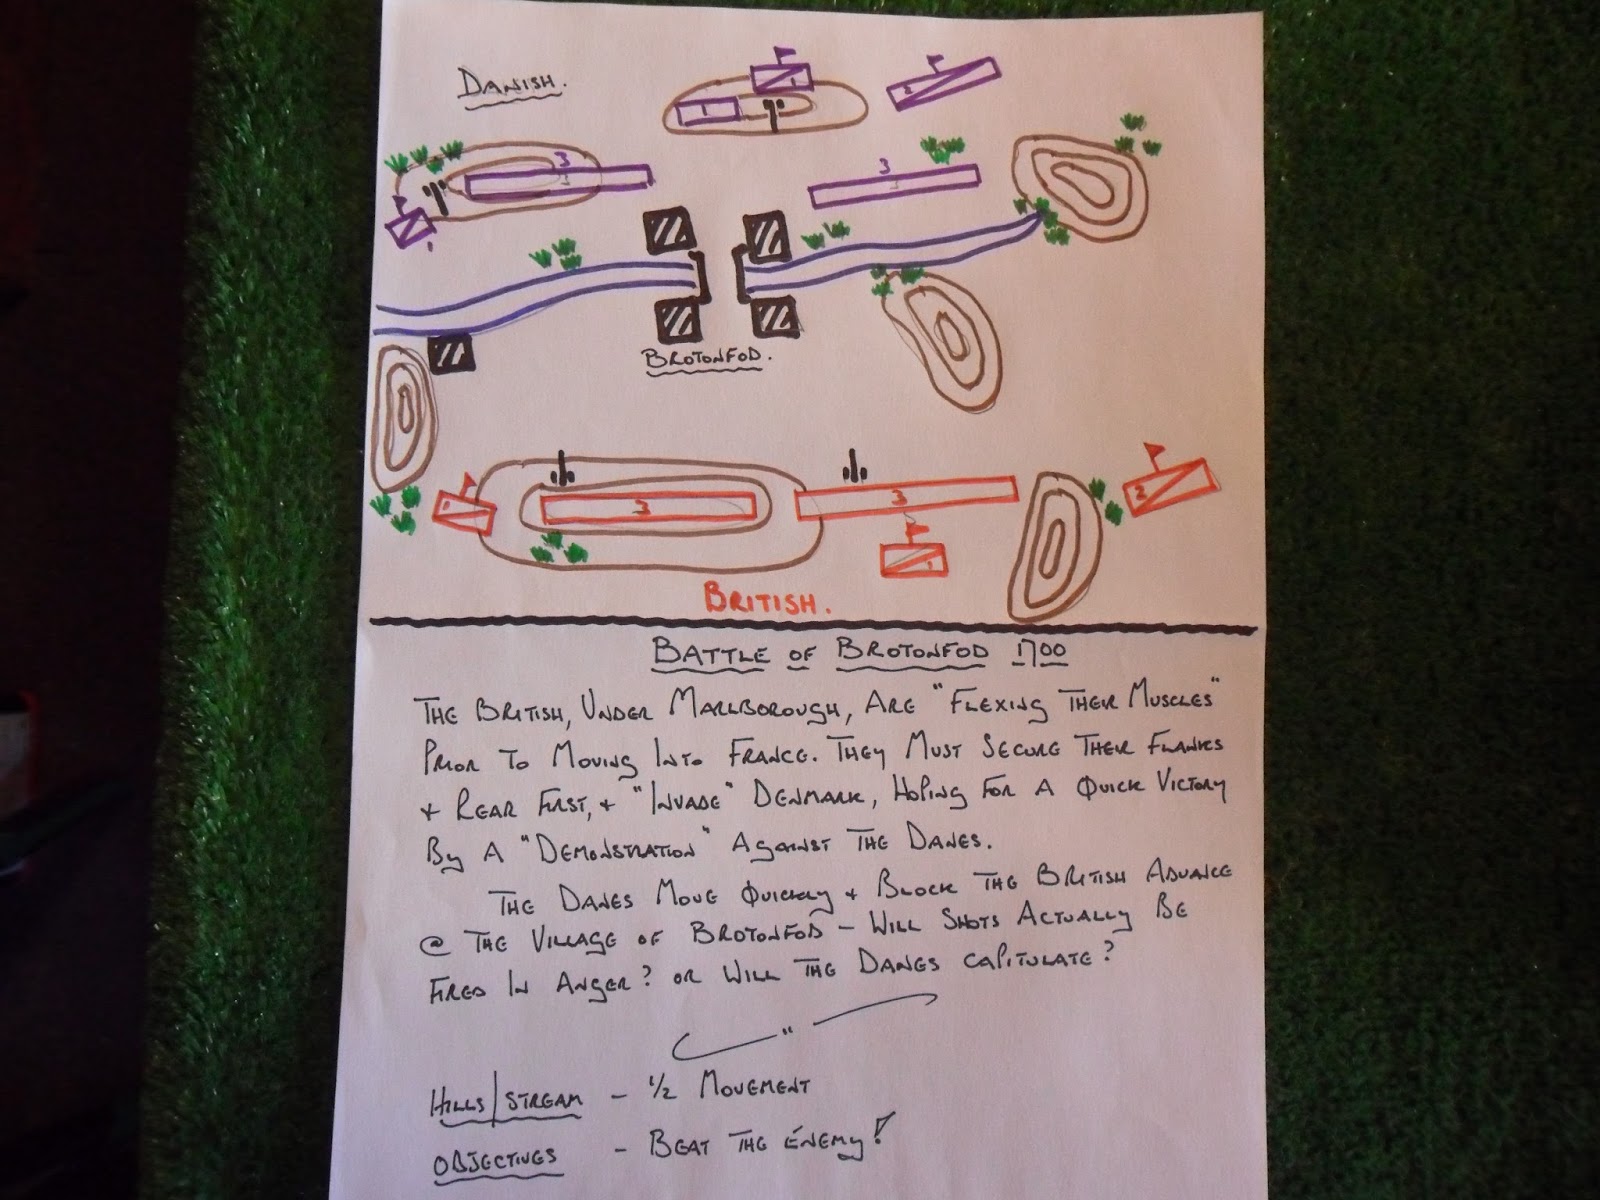 DANISH.
1
1
2
3
3
3
3
1
BROTONFOD.
1
3
3
2
1
BRITISH.
BATTLE OF BROTONFOD 1700
THE BRITISH, UNDER MARLBOROUGH, ARE "FLEXING THEIR MUSCLES"
PRIOR TO MOVING INTO FRANCE. THEY MUST SECURE THEIR FLANKS
+ REAR FIRST, + "INVADE" DENMARK, HOPING FOR A QUICK VICTORY
BY A "DEMONSTRATION" AGAINST THE DANES.
THE DANES MOVE QUICKLY + BLOCK THE BRITISH ADVANCE
@ THE VILLAGE OF BROTONFOD - WILL SHOTS ACTUALLY BE
FIRED IN ANGER? OR WILL THE DANES CAPITULATE?
HILLS/STREAM - 1/2 MOVEMENT
OBJECTIVES - BEAT THE ENEMY!